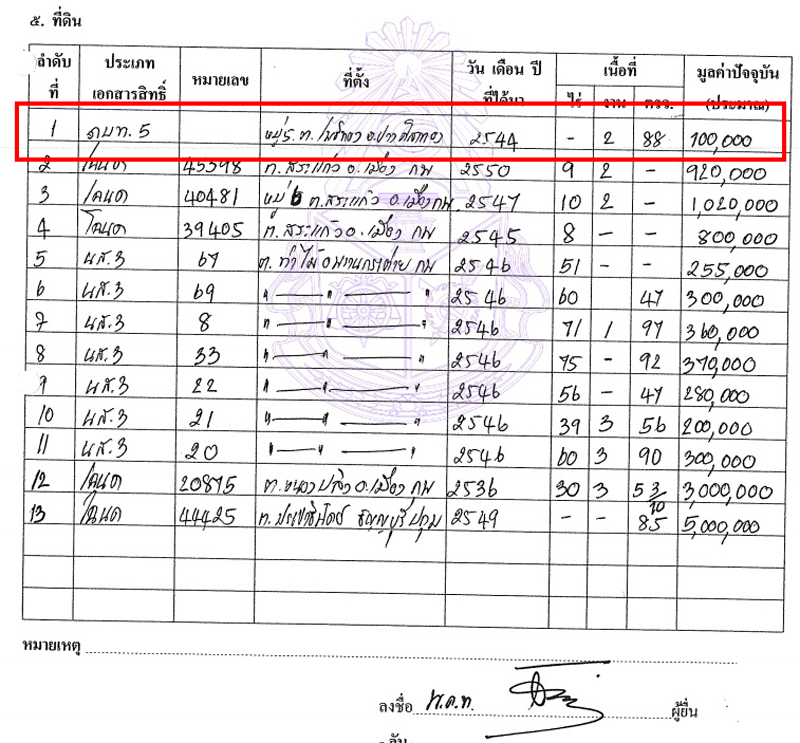 ๕. ที่ดิน
ลำดับที่ ประเภทเอกสารสิทธิ์ หมายเลข ที่ตั้ง วัน เดือน ปี ที่ได้มา เนื้อที่ มูลค่าปัจจุบัน (ประมาณ)
ไร่ งาน ตรว.
1 ภบท. 5 หมู่ 5 ต. อ. 2544 - 2 88 100,000
2 โฉนด 45398 ต. สระแก้ว อ. เมือง กพ 2550 9 2 - 920,000
3 โฉนด 40481 หมู่ 6 ต. สระแก้ว อ. เมือง กพ. 2547 10 2 - 1,020,000
4 โฉนด 39405 ต. สระแก้ว อ. เมือง กพ 2545 8 - - 800,000
5 นส.3 67 ต. ท่าไม้ อ พรานกระต่าย กพ 2546 51 - - 255,000
6 นส.3 69 " — " — " 2546 60 47 300,000
7 นส.3 8 " — " — " 2546 71 1 97 360,000
8 นส.3 33 " — " — " 2546 75 - 92 370,000
9 นส.3 22 " — " — " 2546 56 - 47 280,000
10 นส.3 21 " — " — " 2546 39 3 56 200,000
11 นส.3 20 " — " — " 2546 60 3 90 300,000
12 โฉนด 20875 ต. หนองปลิง อ. เมือง กพ 2536 30 3 53/10 3,000,000
13 โฉนด 44425 ต. ประชาธิปัตย์ ธัญญบุรี ปทุม 2549 - - 85 5,000,000
หมายเหตุ
ลงชื่อ พ.ต.ท. ผู้ยื่น